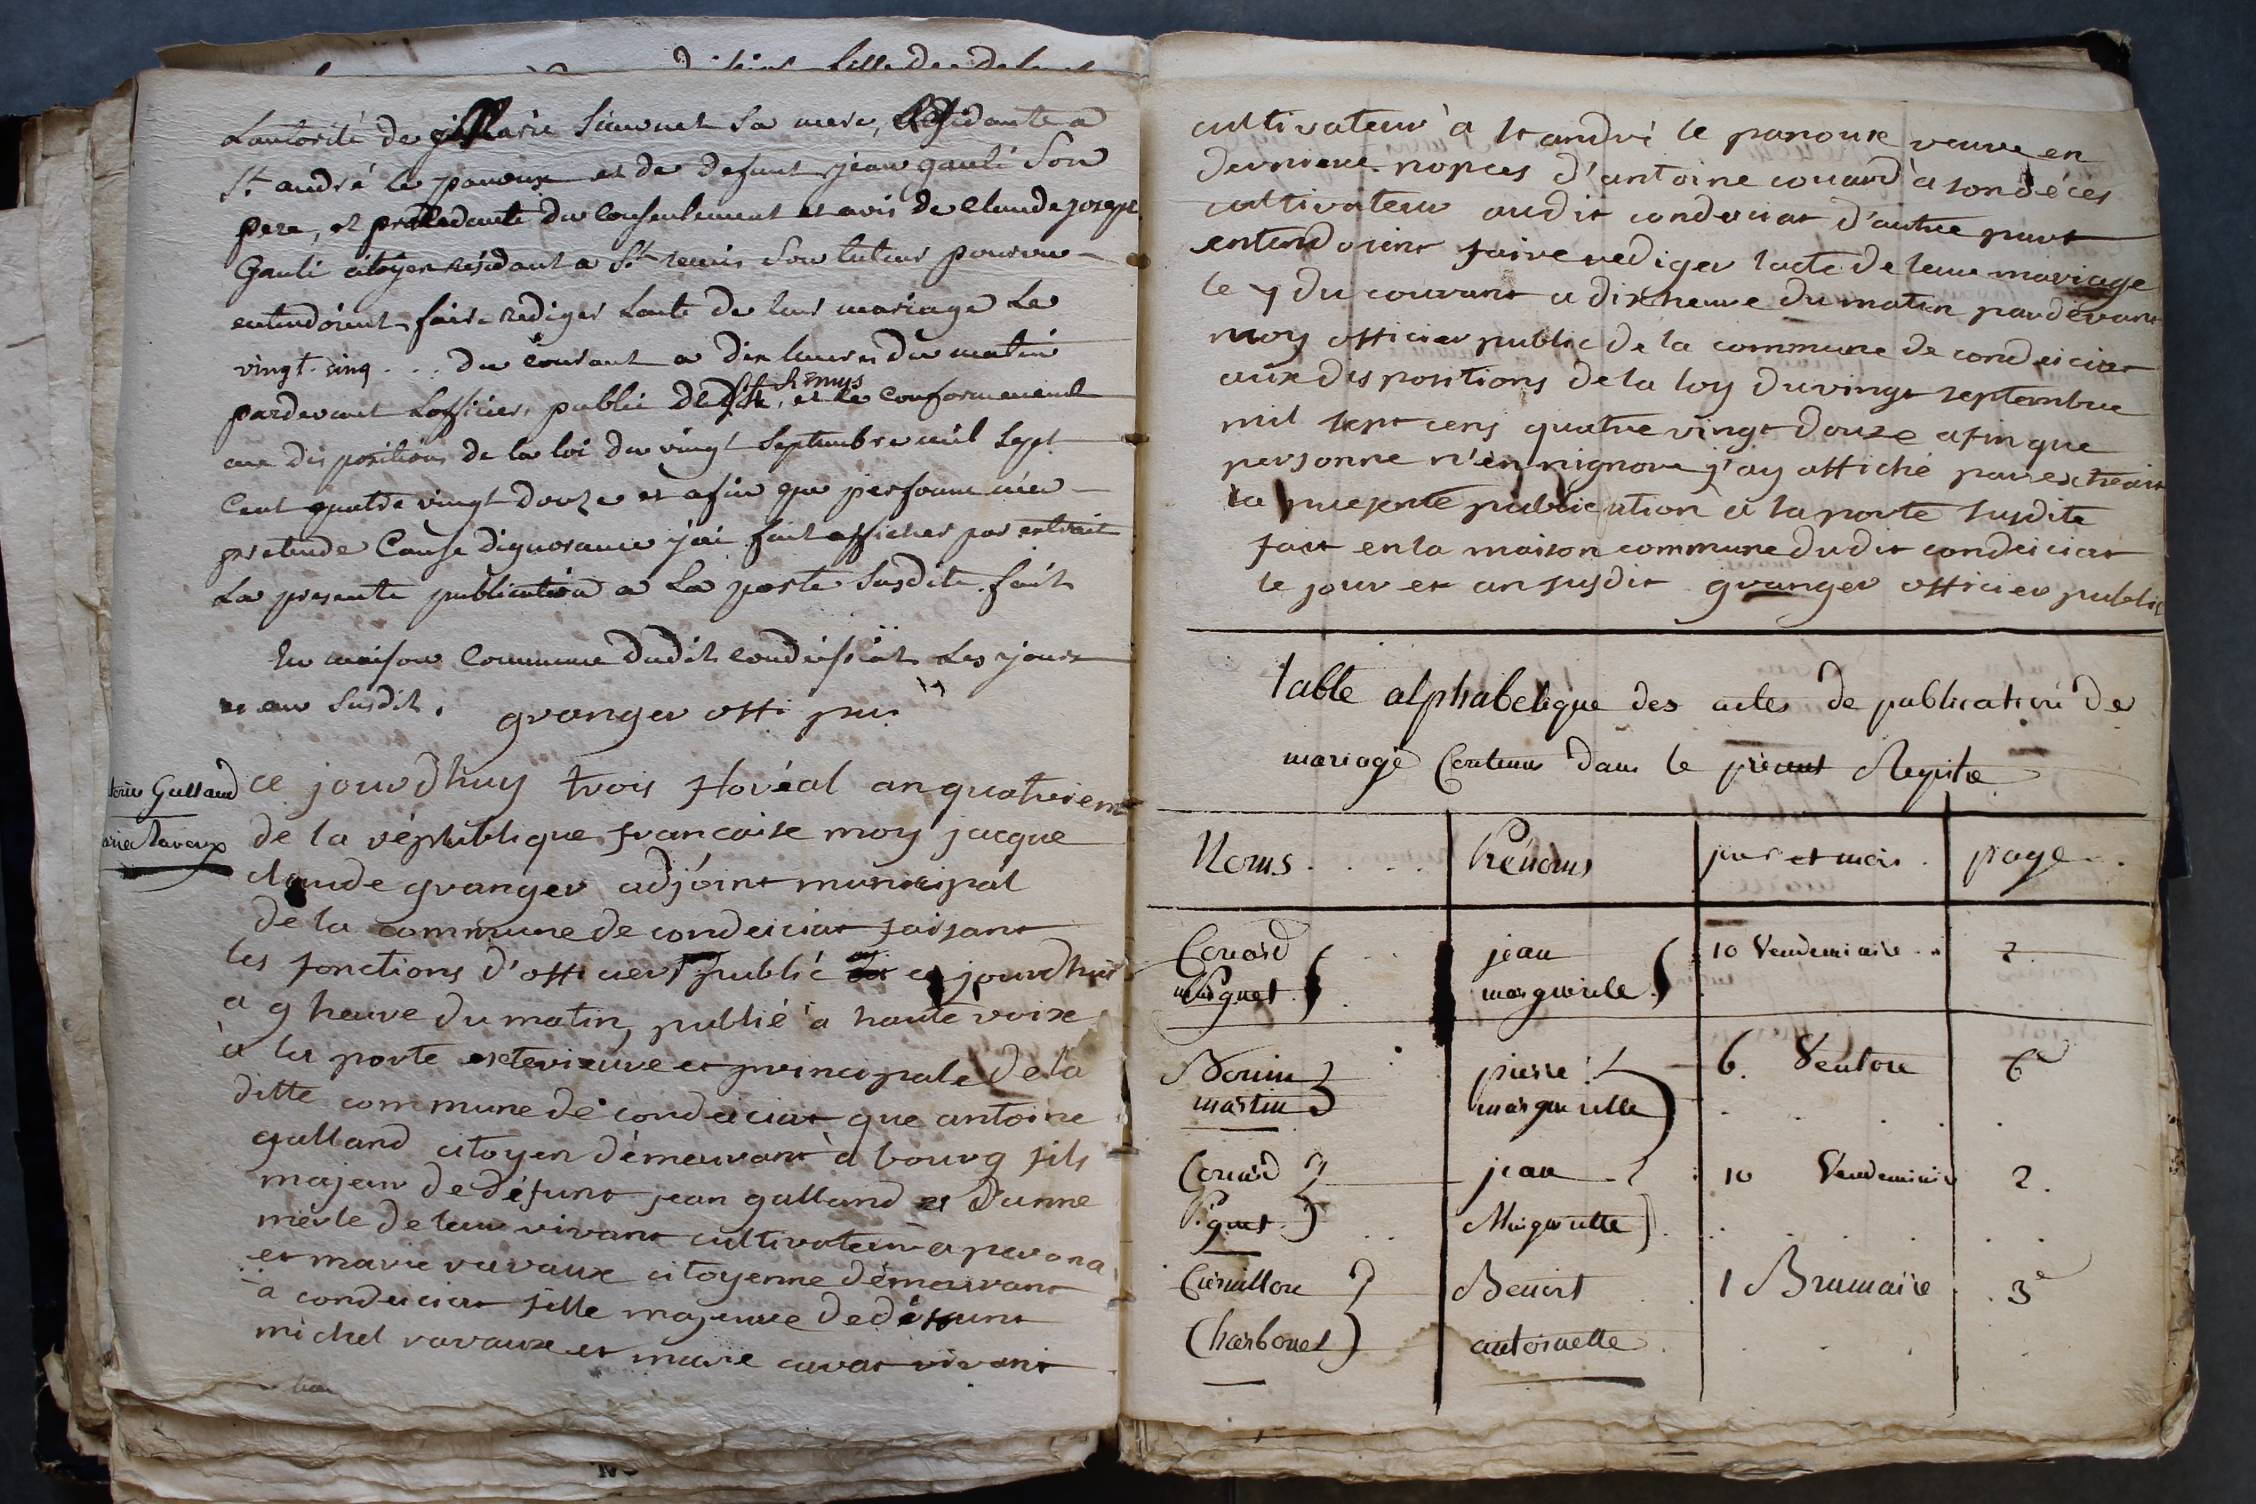 Lautorité de marie Simonet Sa mere, Residante a
St. andré le panoux et de defunt jean gauli Son
pere, et procedante du Consentement et avis de Claude joseph
Gauli citoyen residant a St. remis Son tuteur pourvu
entendoient faire rediger Lacte de leur mariage Le
vingt-cinq ... du Courant a dix heures du matin
pardevant Lofficier public de St. Remys, et ce Conformement
aux dispositions de la loi du vingt Septembre mil Sept
Cent quatre vingt douze et afin que personne n'en
pretende Cause dignorance j'ai fait afficher par extrait
La presente publication a La porte Susdite fait
En maison Commune dudit Condeissiat Les jour
et an Susdit. granger offi pu.
Galland
ravaux
ce jourdhuy trois floréal an quatrieme
de la république francaise moy jacque
claude granger adjoint municipal
de la commune de condeiciat faisant
les fonctions d'officier public ay ce jourdhui
a 9 heure du matin, publié a haute voixe
à la porte exterieure et principale de la
ditte commune de condeiciat que antoine
galland citoyen démeurant à bourg fils
majeur de défunt jean galland et d'anne
merle de leur vivant cultivateur a perona
et marie ravaux citoyenne démeurant
à condeiciat fille majeure de défunt
michel ravaux et marie cavat vivant
cultivateur à st andré le panoux veuve en
derniere nopces d'antoine couard à son décès
cultivateur audit condeiciat d'autre part
entendoient faire rediger lacte de leur mariage
le 7 du courant a dix heure du matin pardevant
moy officier public de la commune de condeiciat
aux dispositions de la loy du vingt septembre
mil sept cens quatre vingt douze afin que
personne n'en nignore j'ay affiché par extrait
la presente publication à la porte susdite
fait en la maison commune dudit condeiciat
le jour et an susdit granger officier public
table alphabetique des actes de publication de
mariage Contenus dans le présent Registre
Noms .... Prénoms jour et mois . page ..
Couard jean 10 Vendemiaire .. 2
Piguet marguerite
Morin pierre 6. Ventose 6e
martin marguerite
Couard jean 10 Vendemiaire 2.
Piguet Marguerite
Curnillon Benoit 1 Brumaire 3e
Charbonet antoinette